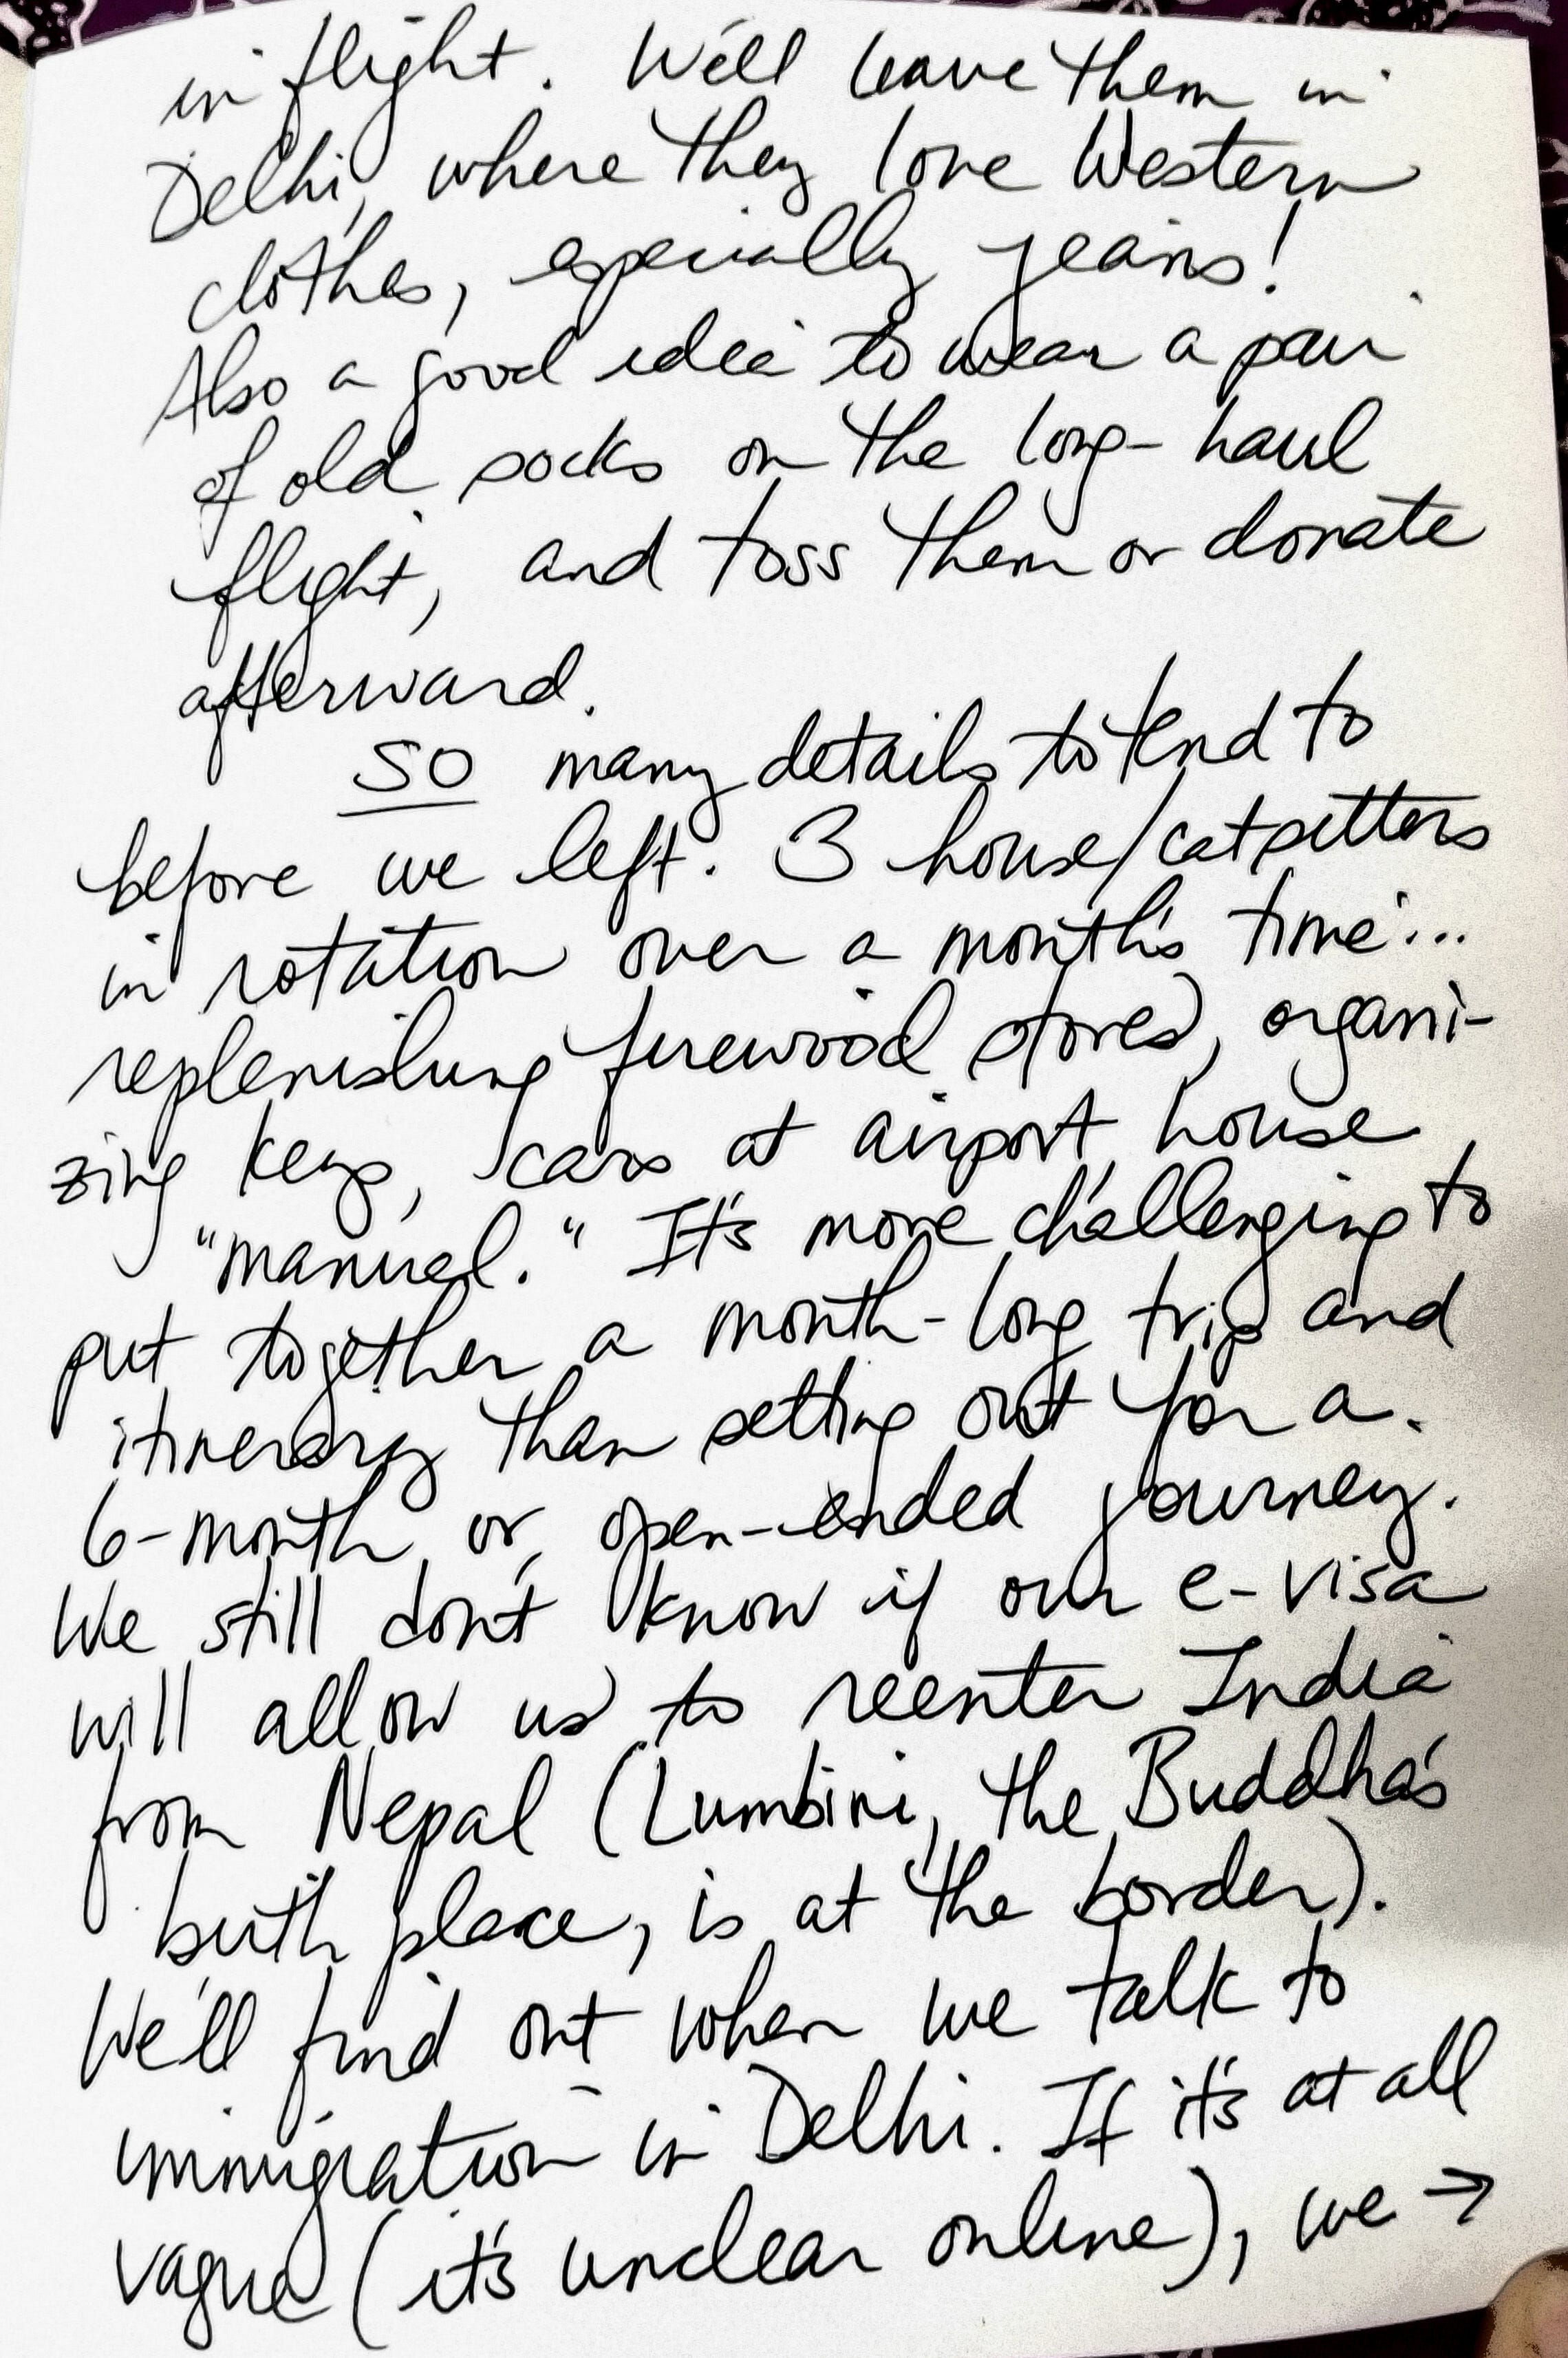 in flight. We'll leave them in
Delhi, where they love Western
clothes, especially jeans!
Also a good idea to wear a pair
of old socks on the long-haul
flight, and toss them or donate
afterward.
SO many details to tend to
before we left. 3 house/catsitters
in rotation over a month's time...
replenishing firewood stores, organi-
zing keys, cars at airport, house
"manual." It's more challenging to
put together a month-long trip and
itinerary than setting out for a
6-month or open-ended journey.
We still don't know if our e-visa
will allow us to reenter India
from Nepal (Lumbini, the Buddha's
birth place, is at the border).
We'll find out when we talk to
immigration in Delhi. If it's at all
vague (it's unclear online), we →